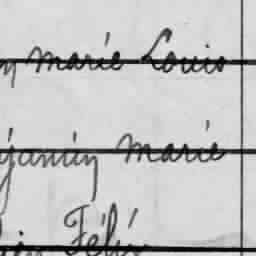 marie Louis
jamin marie
Félix